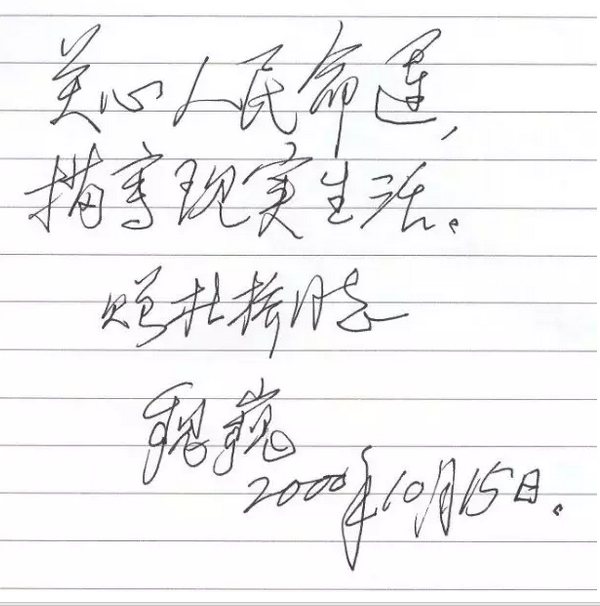 关心人民命运,
描写现实生活。
赠杜桥同志
魏巍
2000年10月15日.